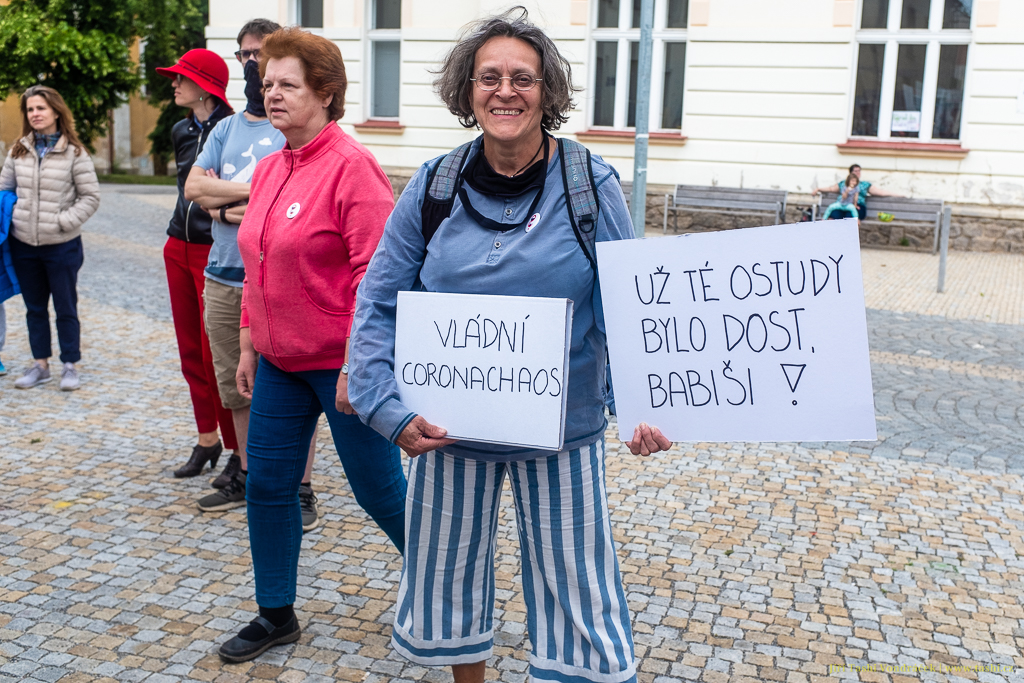 VLÁDNÍ
CORONACHAOS
UŽ TÉ OSTUDY
BYLO DOST,
BABIŠI !